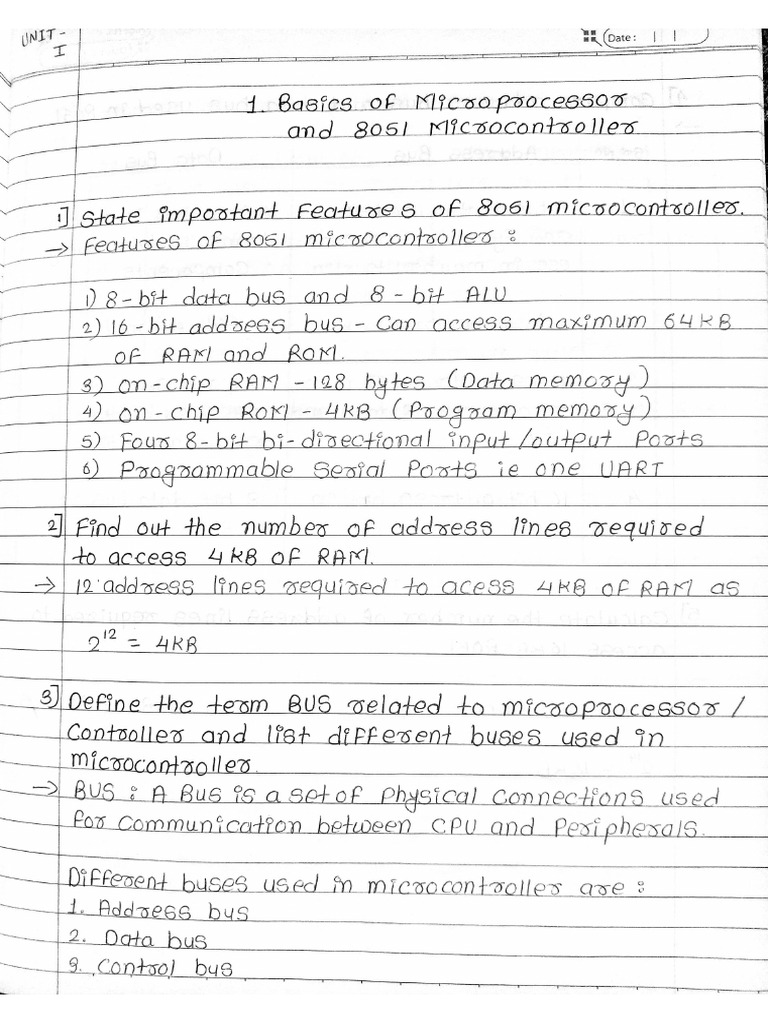 UNIT-
I
Date :
1. Basics of Microprocessor
and 8051 Microcontroller
1] State important features of 8051 microcontroller.
→ Features of 8051 microcontroller :
1) 8-bit data bus and 8-bit ALU
2) 16-bit address bus - Can access maximum 64KB
of RAM and ROM.
3) on-chip RAM - 128 bytes (Data memory)
4) on-chip ROM - 4KB (Program memory)
5) Four 8-bit bi-directional input/output Ports
6) Programmable Serial Ports ie one UART
2] Find out the number of address lines required
to access 4KB of RAM.
→ 12 address lines required to acess 4KB of RAM as
2¹² = 4KB
3] Define the term BUS related to microprocessor /
Controller and list different buses used in
microcontroller.
→ BUS : A Bus is a set of Physical Connections used
for communication between CPU and Peripherals.
Different buses used in microcontroller are :
1. Address bus
2. Data bus
3. Control bus